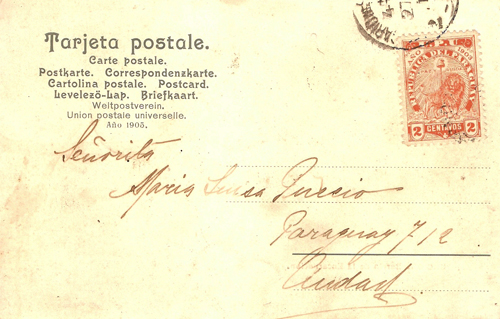 Tarjeta postale.
Carte postale.
Postkarte. Correspondenzkarte.
Cartolina postale. Postcard.
Levelező-Lap. Briefkaart.
Weltpostverein.
Union postale universelle.
Año 1905.
AÑO 1903
REPUBLICA DEL PARAGUAY
2 CENTAVOS 2
Señorita
Maria Luisa Puccio
Paraguay 712
Ciudad